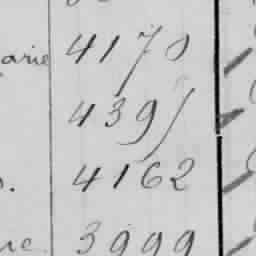 arie 4170
4391
s. 4162
ne 3999